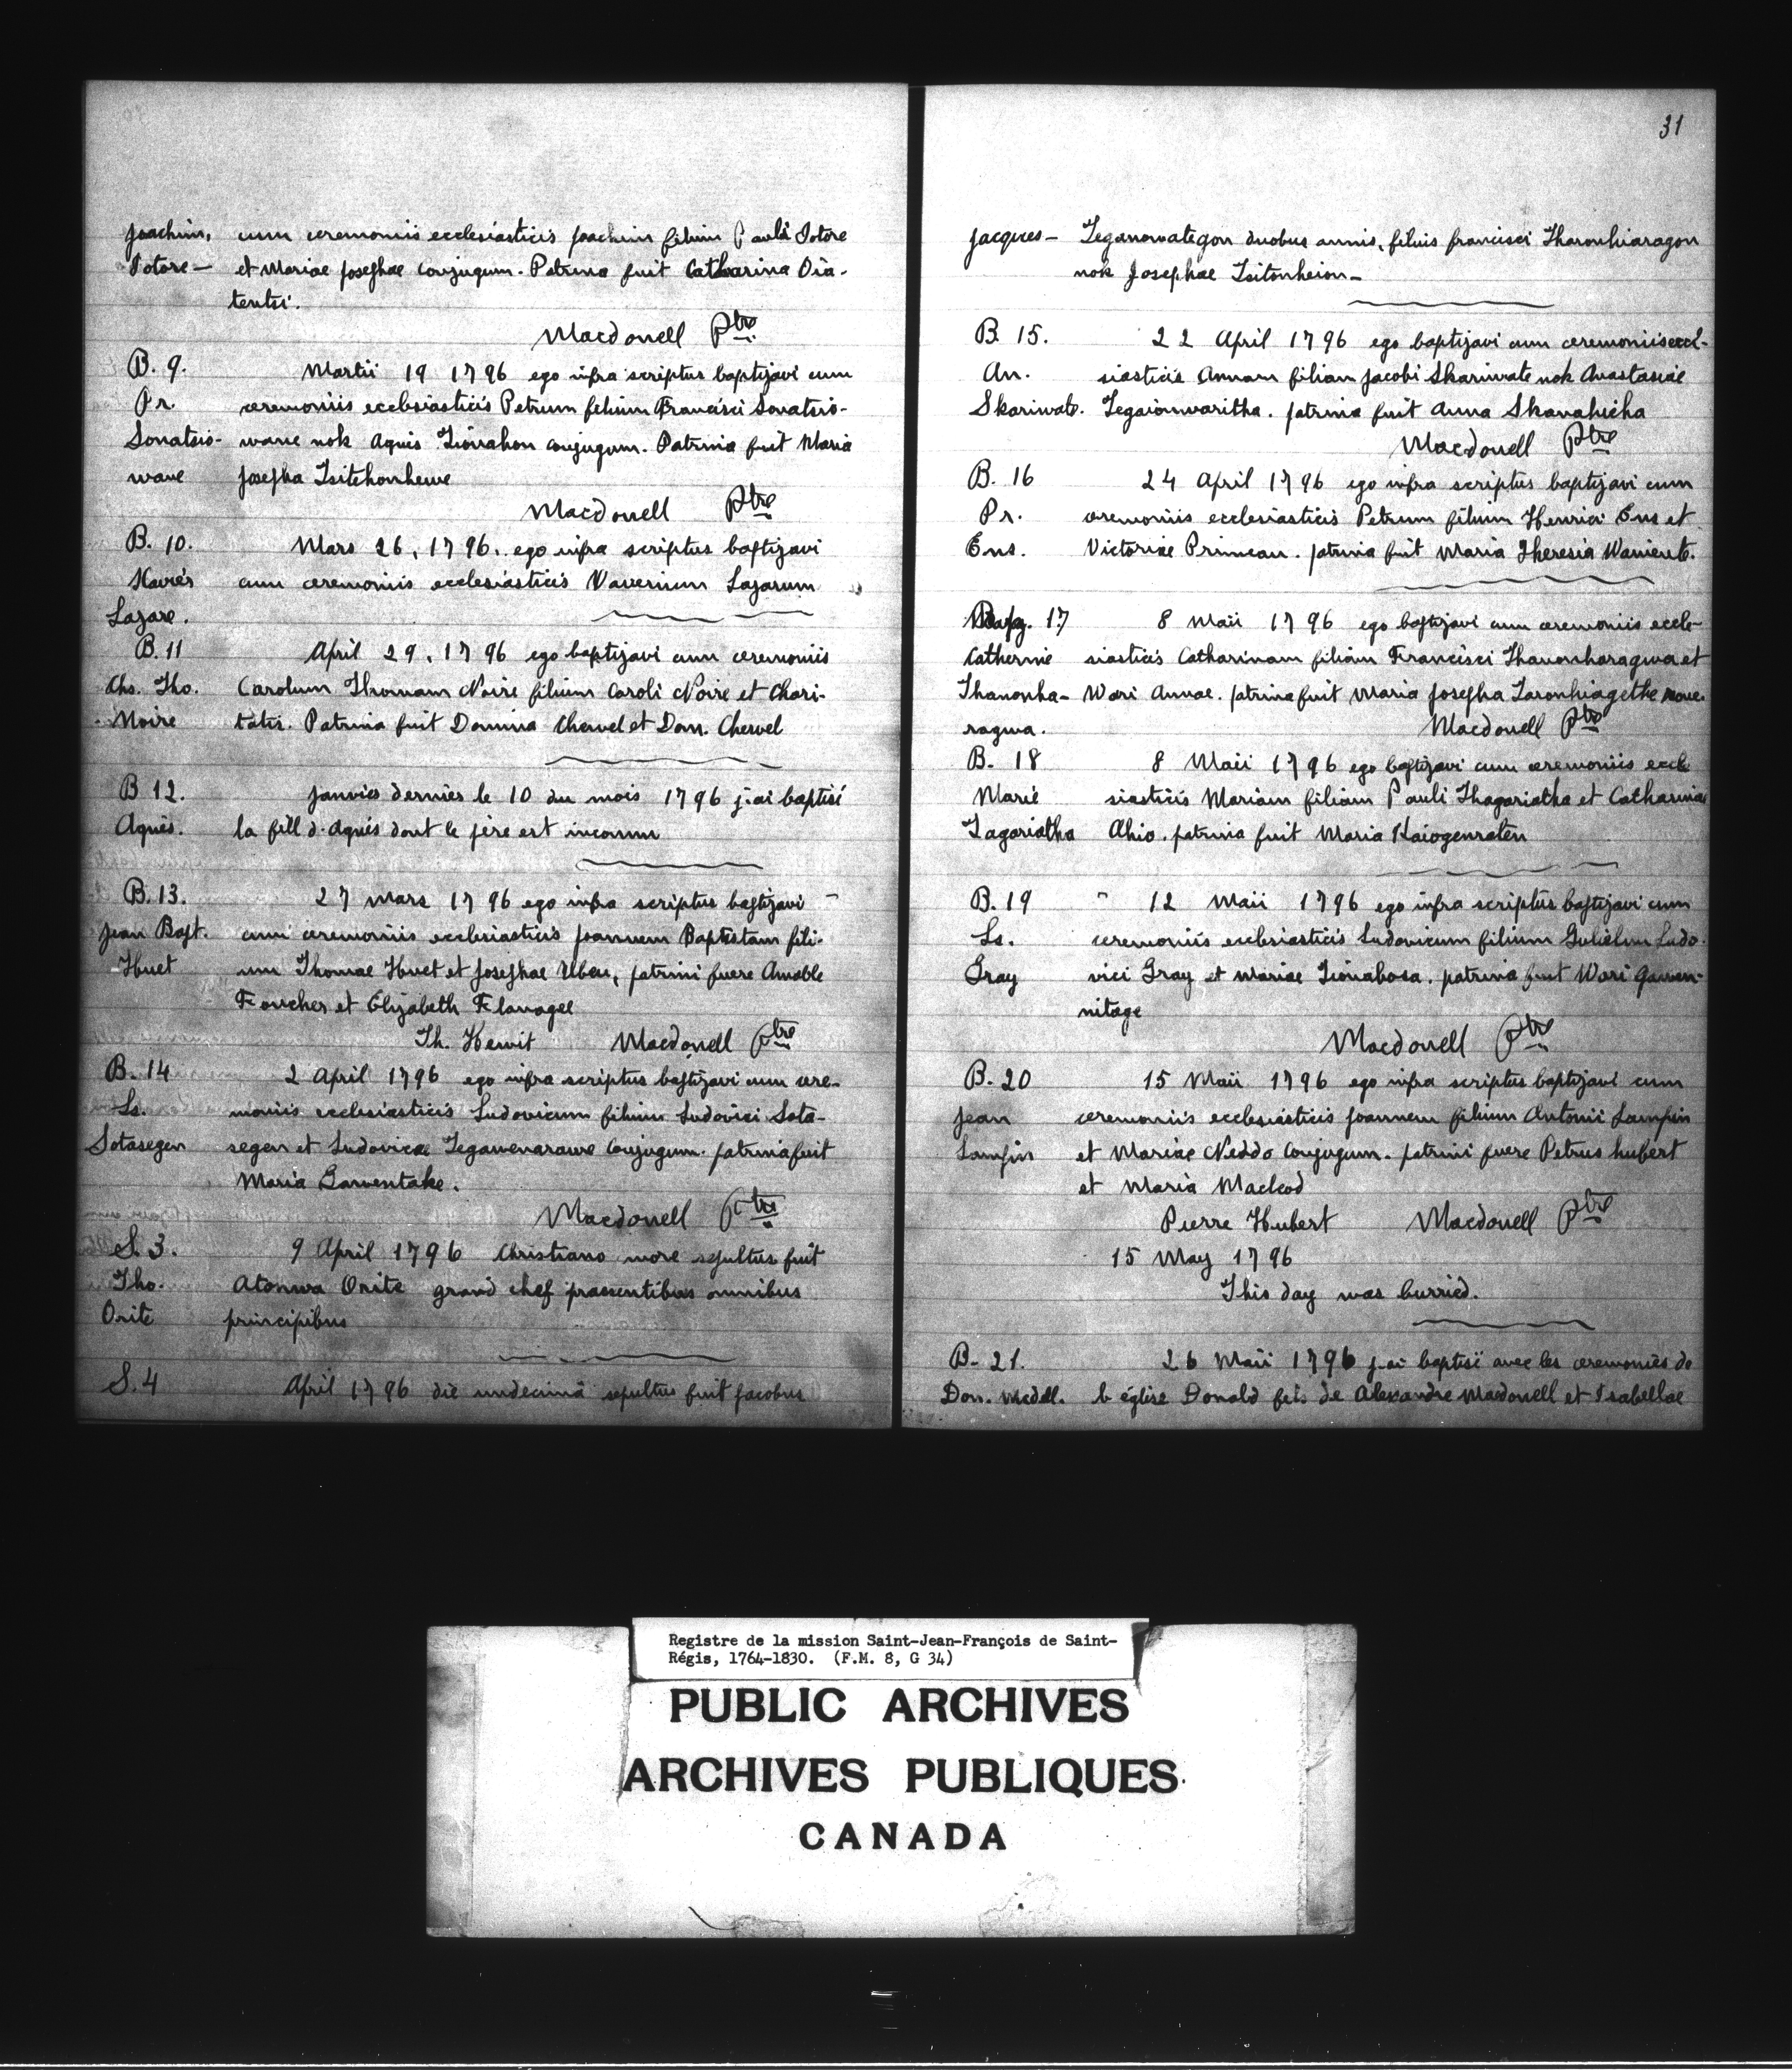 Joachim, cum ceremoniis ecclesiasticis Joachim filium Pauli Sotore
Sotore — et Mariae Josephae Conjugum. Patrina fuit Catharina Oia-
tentsi.
Macdonell Ptre
B. 9. Martii 19 1796 ego infra scriptus baptizavi cum
Pr. ceremoniis ecclesiasticis Petrum filium Francisci Sonatsio-
Sonatsio- wane nok Agnis Tionahon conjugum. Patrina fuit Maria
wane Josepha Tsitehonhewe
Macdonell Ptre
B. 10. Mars 26, 1796. ego infra scriptus baptizavi
Xavier cum ceremoniis ecclesiasticis Vaverium Lazarum
Lazare.
B. 11 April 29, 1796 ego baptizavi cum ceremoniis
Chs. Tho. Carolum Thomam Noire filium Caroli Noire et Chari-
Noire tatis. Patrina fuit Domina Chervel et Dom. Chervel
B 12. Janvier dernier le 10 du mois 1796 j'ai baptisé
Agnès. la fill d'Agnés dont le père est inconnu
B. 13. 27 Mars 1796 ego infra scriptus baptizavi
Jean Bapt. cum ceremoniis ecclesiasticis Joannem Baptistam fili-
Huet um Thomae Huet et Josephae Uben, patrini fuere Amable
Foucher et Elizabeth Flanagel
Th. Hewit Macdonell Ptre
B. 14 2 April 1796 ego infra scriptus baptizavi cum cere-
Ls. moniis ecclesiasticis Ludovicum filium Ludovici Sota-
Sotasegen segen et Ludovicae Tegawenarawe Conjugum. patrina fuit
Maria Gawentake.
Macdonell Ptre
S. 3. 9 April 1796 Christiano more sepultus fuit
Tho. Atonwa Orite grand chef praesentibus omnibus
Orite principibus
S. 4 April 1796 die undecimâ sepultus fuit Jacobus
31
Jacques — Teganowategon duobus annis, filius francisci Tharonhiaragon
nok Josephae Tsitonheion —
B. 15. 22 April 1796 ego baptizavi cum ceremoniis eccl-
An. siasticis Annam filiam Jacobi Skariwate nok Anastasiae
Skariwate. Tegaionwaritha. patrina fuit Anna Skanahicha
Macdonell Ptre
B. 16 24 April 1796 ego infra scriptus baptizavi cum
Pr. ceremoniis ecclesiasticis Petrum filium Henrici Ens et
Ens. Victoriae Primeau. patrina fuit Maria Theresia Waniente.
Bap. 17 8 Maii 1796 ego baptizavi cum ceremoniis eccle-
Catherine siasticis Catharinam filiam Francisci Thanonharagwa et
Thanonha- Wari Annae. patrina fuit Maria Josepha Taronhiagethe
ragwa. Macdonell Ptre
B. 18 8 Maii 1796 ego baptizavi cum ceremoniis eccle
Marie siasticis Mariam filiam Pauli Thagariatha et Catharinae
Tagariatha Ohio. patrina fuit Maria Kaiogenraten
B. 19 12 Maii 1796 ego infra scriptus baptizavi cum
Ls. ceremoniis ecclesiasticis Ludovicum filium Gulielmi Ludo-
Gray vici Gray et Mariae Tionahosa. patrina fuit Wari Gawen-
nitage
Macdonell Ptre
B. 20 15 Maii 1796 ego infra scriptus baptizavi cum
Jean ceremoniis ecclesiasticis Joannem filium Antonii Lampin
Lampin et Mariae Neddo Conjugum. patrini fuere Petrus hubert
et Maria Macleod
Pierre Hubert Macdonell Ptre
15 May 1796
This day was burried.
B. 21. 26 Maii 1796 j'ai baptisé avec les ceremonies de
Don. Mcdll. l'église Donald fils de Alexandre Macdonell et Isabellae
Registre de la mission Saint-Jean-François de Saint-
Régis, 1764-1830. (F.M. 8, G 34)
PUBLIC ARCHIVES
ARCHIVES PUBLIQUES
CANADA